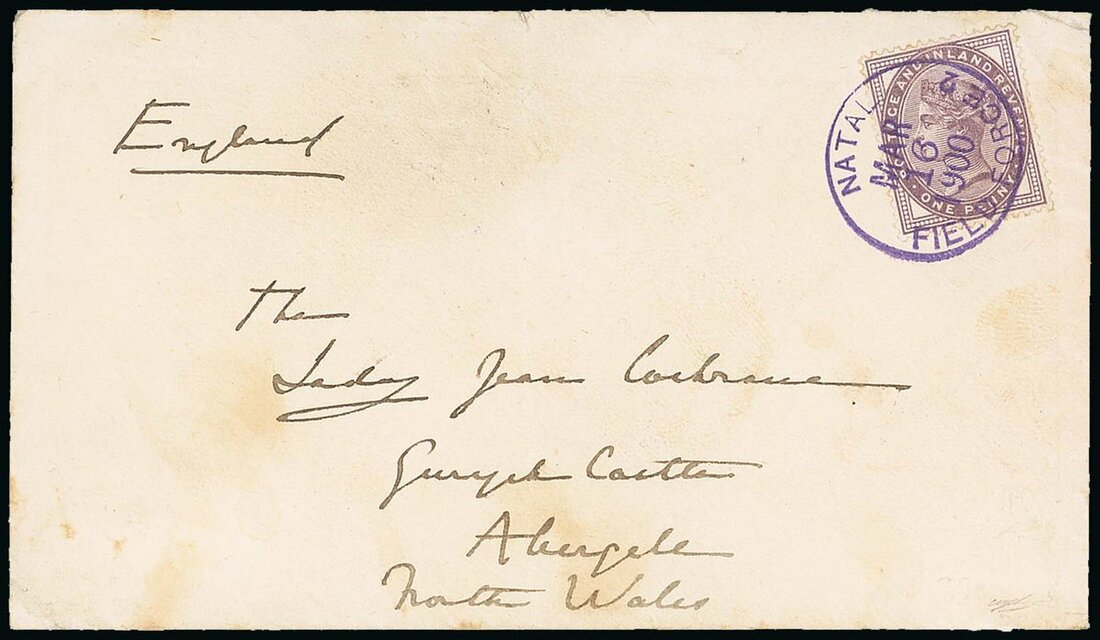 England
The
Lady Jean Cochrane
Gwrych Castle
Abergele
North Wales
NATAL FIELD FORCE 2
MAR
16
900
POSTAGE AND INLAND REVENUE
ONE PENNY